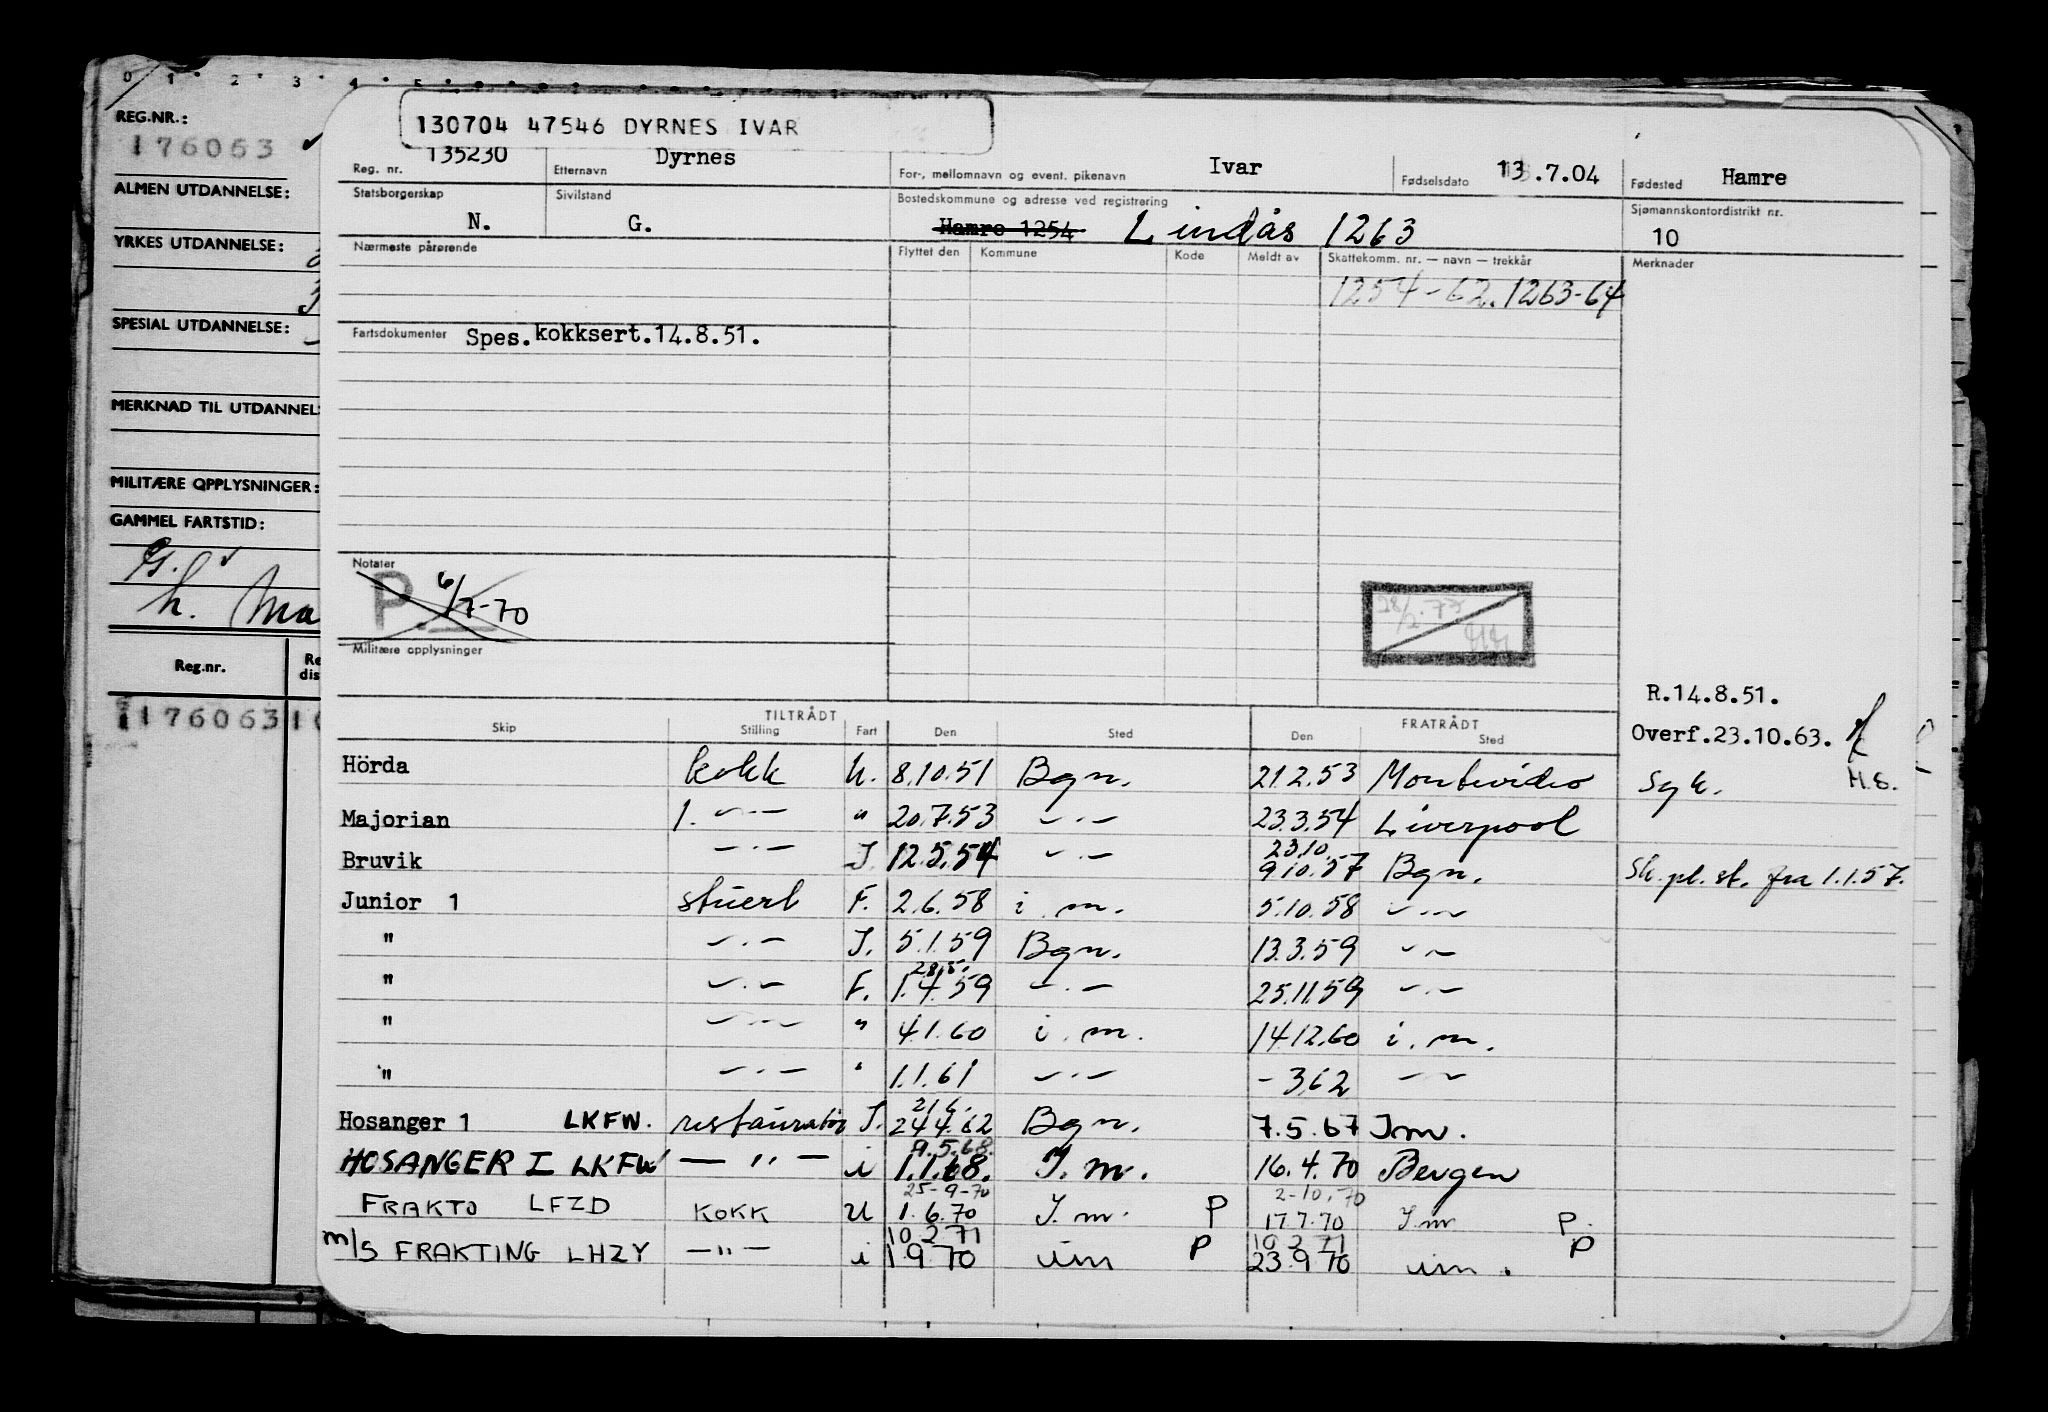 0 1 2 3 4 5
REG.NR.:
176063
ALMEN UTDANNELSE:
YRKES UTDANNELSE:
SPESIAL UTDANNELSE:
MERKNAD TIL UTDANNEL
MILITÆRE OPPLYSNINGER:
GAMMEL FARTSTID:
G.
h. Ma
Reg.nr. Re dis
176063 1
130704 47546 DYRNES IVAR
Reg. nr. 135230 Etternavn Dyrnes For-, mellomnavn og event. pikenavn Ivar Fødselsdato 13.7.04 Fødested Hamre
Statsborgerskap N. Sivilstand G. Bostedskommune og adresse ved registrering Hamre 1254 Lindås 1263 Sjømannskontordistrikt nr. 10
Nærmeste pårørende Flyttet den Kommune Kode Meldt av Skattekomm. nr. — navn — trekkår Merknader
1254-62. 1263-64
Fartsdokumenter Spes.kokksert.14.8.51.
Notater
P. 6/7-70
28/2.77
Militære opplysninger
R.14.8.51.
Overf.23.10.63.
H.S.
TILTRÅDT FRATRÅDT
Skip Stilling Fart Den Sted Den Sted
Hörda kokk U. 8.10.51 Bgn. 21.2.53 Montevideo Syk.
Majorian 1. -"- " 20.7.53 -"- 23.3.54 Liverpool
23.10.
Bruvik -"- I. 12.5.54 -"- 9.10.57 Bgn. Sk.pl.st. fra 1.1.57.
Junior 1 stuert F. 2.6.58 i. m. 5.10.58 -"-
" -"- I. 5.1.59 Bgn. 13.3.59 -"-
28.5.
" -"- F. 1.4.59 -"- 25.11.59 -"-
" -"- " 4.1.60 i. m. 14.12.60 i. m.
" -"- " 1.1.61 -"- - 3.62 -"-
21.6.
Hosanger 1 LKFW. restauratør I. 24.4.62 Bgn. 7.5.67 Im.
9.5.68.
HOSANGER I LKFW -"- i 1.1.68. I. m. 16.4.70 Bergen
25-9-70 2-10.70
FRAKTO LFZD KOKK U 1.6.70 I. m. P 17.7.70 I.m P.
10 2 71 10 2 71
m/S FRAKTING LHZY -"- i 1 9 70 im P 23.9 70 im. P